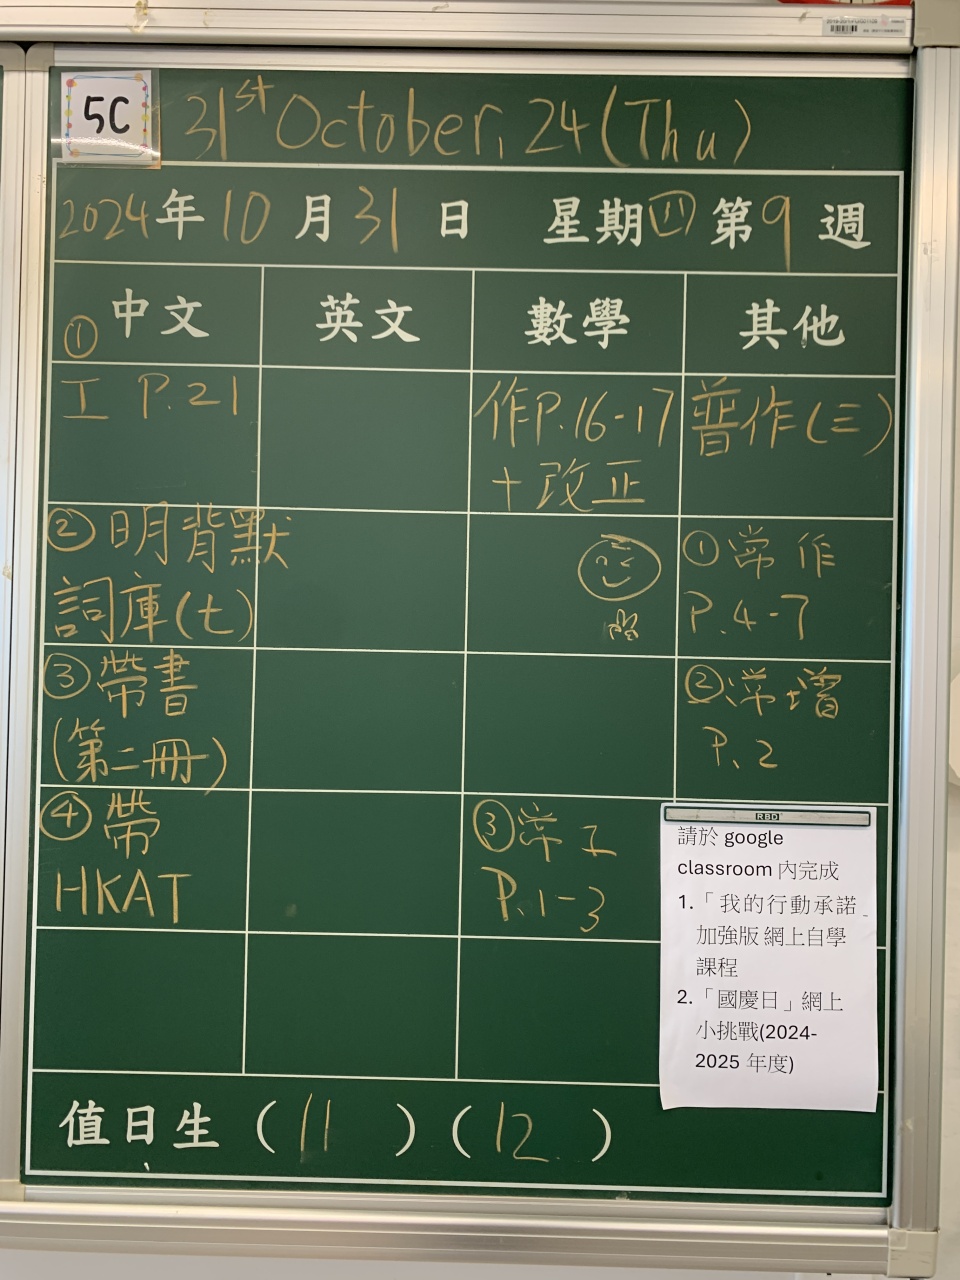 5C
31st October, 24 (Thu)
2024年10月31日 星期四 第9週
中文 英文 數學 其他
① 工 P.21
作P.16-17
+改正
普作(三)
② 明背默
詞庫(七)
① 常作
P.4-7
③ 帶書
(第二冊)
② 常增
P.2
④ 帶
HKAT
③ 常工
P.1-3
RBD
請於 google
classroom 內完成
1.「我的行動承諾
加強版 網上自學
課程
2.「國慶日」網上
小挑戰(2024-
2025 年度)
值日生 (11) (12)